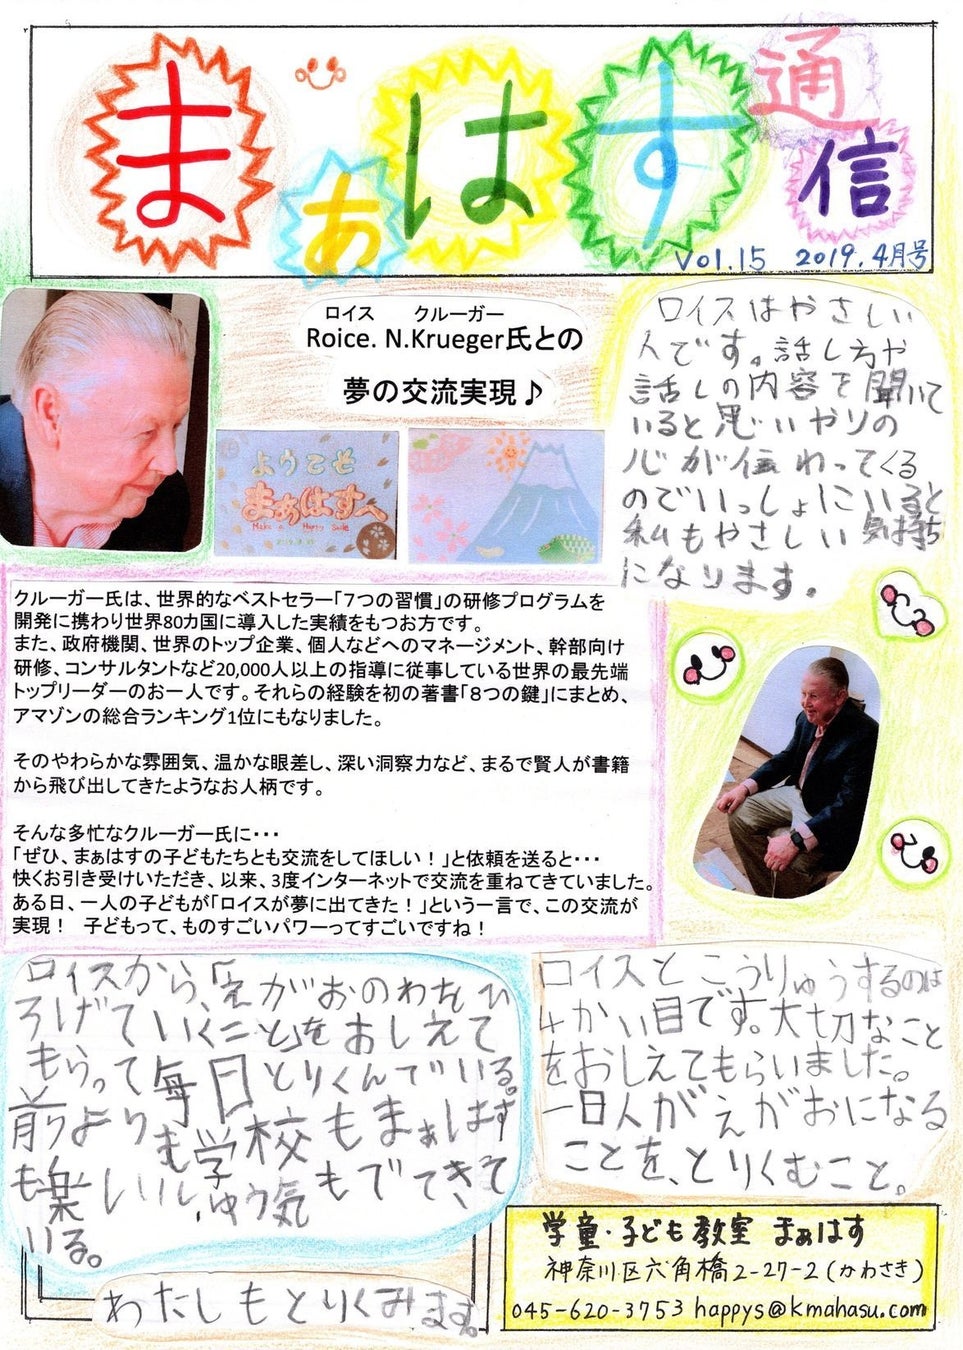 まぁはす通信
Vol.15 2019.4月号
ロイス クルーガー
Roice. N.Krueger氏との
夢の交流実現♪
ようこそ
まぁはすへ
Make a Happy Smile
ロイスはやさしい
人です。話し方や
話しの内容を聞いて
いると思いやりの
心が伝わってくる
のでいっしょにいると
私もやさしい気持ち
になります。
クルーガー氏は、世界的なベストセラー「7つの習慣」の研修プログラムを
開発に携わり世界80カ国に導入した実績をもつお方です。
また、政府機関、世界のトップ企業、個人などへのマネージメント、幹部向け
研修、コンサルタントなど20,000人以上の指導に従事している世界の最先端
トップリーダーのお一人です。それらの経験を初の著書「8つの鍵」にまとめ、
アマゾンの総合ランキング1位にもなりました。
そのやわらかな雰囲気、温かな眼差し、深い洞察力など、まるで賢人が書籍
から飛び出してきたようなお人柄です。
そんな多忙なクルーガー氏に・・・
「ぜひ、まぁはすの子どもたちとも交流をしてほしい！」と依頼を送ると・・・
快くお引き受けいただき、以来、3度インターネットで交流を重ねてきていました。
ある日、一人の子どもが「ロイスが夢に出てきた！」という一言で、この交流が
実現！ 子どもって、ものすごいパワーってすごいですね！
ロイスから、「えがおのわをひ
ろげていくこと」をおしえて
もらって毎日とりくんでいる。
前よりも学校もまぁはす
も楽しいし、ゆう気もでてきて
いる。
わたしもとりくみます。
ロイスとこうりゅうするのは
4かい目です。大切なこと
をおしえてもらいました。
一日人がえがおになる
ことを、とりくむこと。
学童・子ども教室 まぁはす
神奈川区六角橋2-27-2(かわさき)
045-620-3753 happys@kmahasu.com